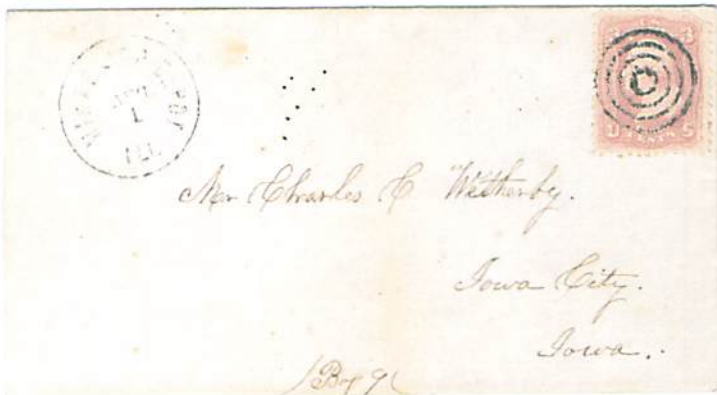 3
U S
C
1
ILL
Mr Charles C Wetherby.
Iowa City.
Iowa.
Box 91